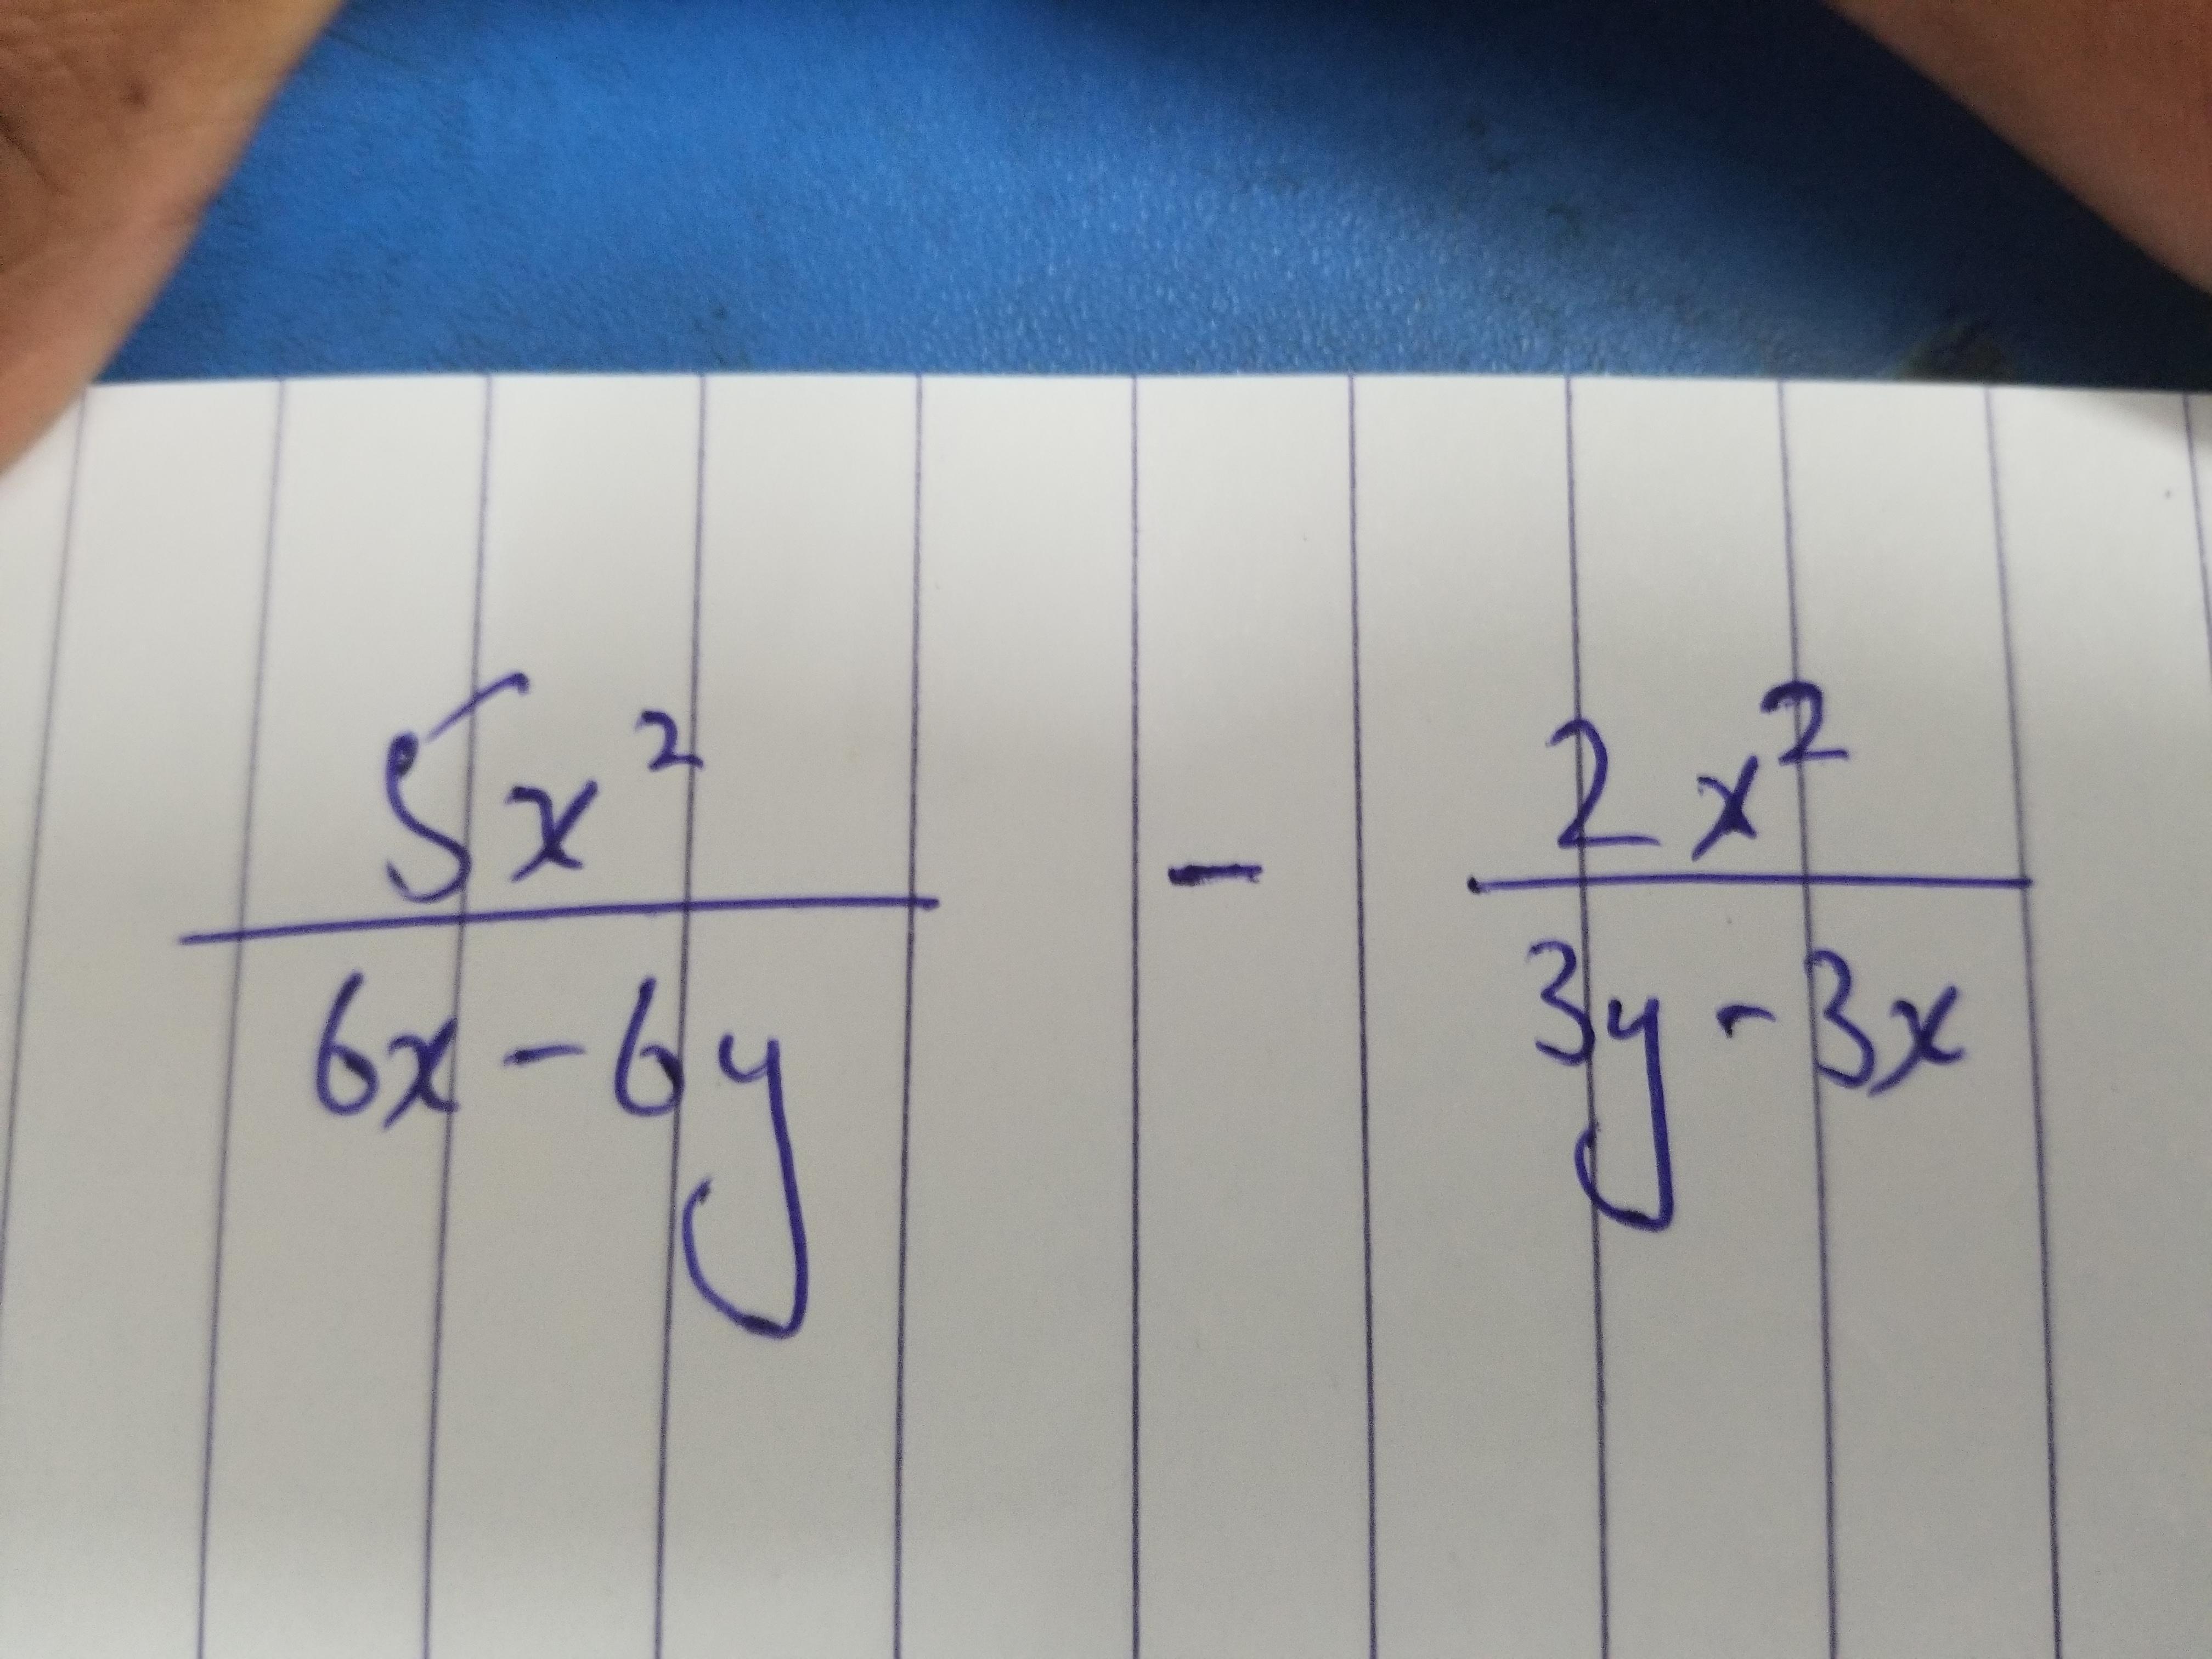 5x² / (6x - 6y) - 2x² / (3y - 3x)